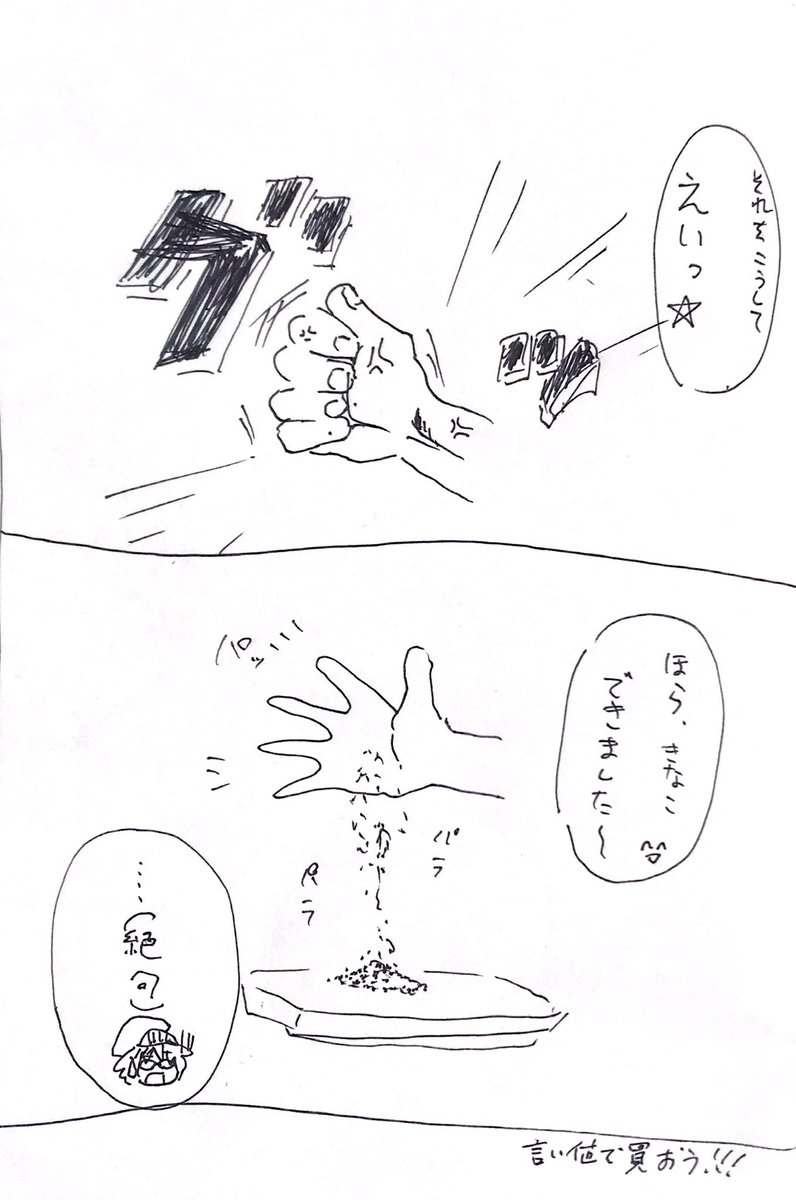 それをこうして
えいっ☆
グッ
ほら、きなこ
できました〜
パッ
パラ
パラ
……(絶句)
言い値で買おう!!!